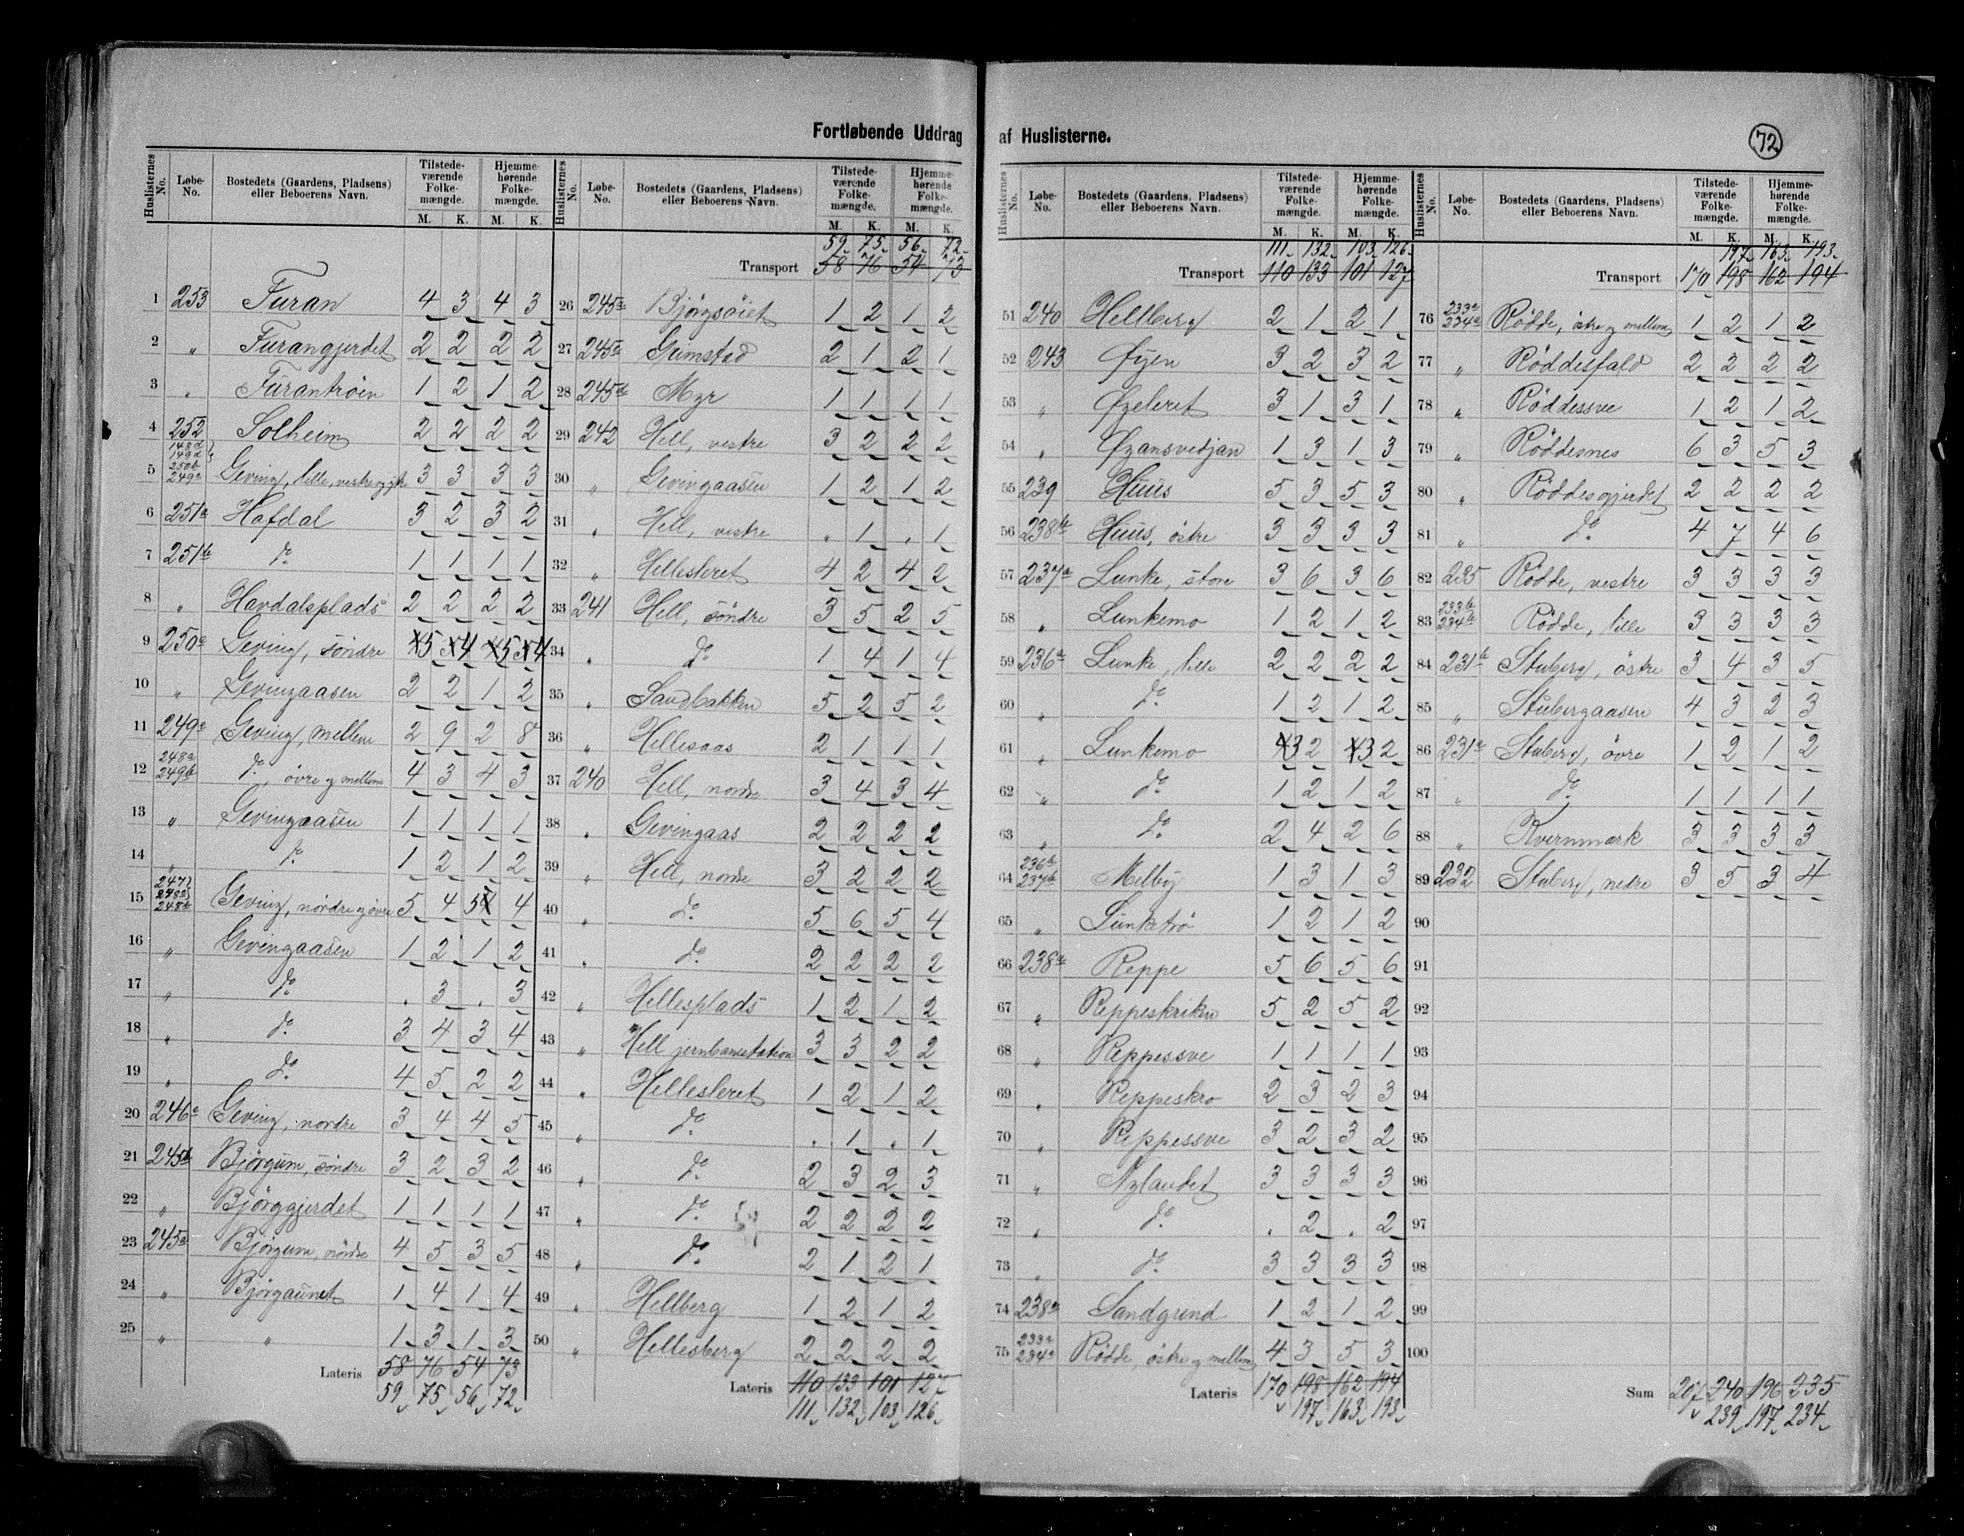 Fortløbende Uddrag af Huslisterne.
72
Huslisternes No. Løbe-No. Bostedets (Gaardens, Pladsens) eller Beboerens Navn. Tilstedeværende Folkemængde. M. K. Hjemmehørende Folkemængde. M. K.
1 253 Furan 4 3 4 3
2 " Furangjerdet 2 2 2 2
3 " Furantrøen 1 2 1 2
4 252 Solheim 2 2 2 2
5 148d 149d 250b 249a Geving, lille, vestre 3 3 3 3
6 251a Hafdal 3 2 3 2
7 251b do 1 1 1 1
8 " Havdalsplads 2 2 2 2
9 250a Geving, söndre 5 4 5 4
10 " Gevingaasen 2 2 1 2
11 249c Geving, mellem 2 9 2 8
12 248a 249b do, övre og mellem 4 3 4 3
13 " Gevingaasen 1 1 1 1
14 " do 1 2 1 2
15 247 248b Geving, nordre og övre 5 4 5 4
16 " Gevingaasen 1 2 1 2
17 " do . 3 . 3
18 " do 3 4 3 4
19 " do 4 5 2 2
20 246a Geving, nordre 3 4 4 5
21 245b Bjørgum, söndre 3 2 3 2
22 " Bjørggjerdet 1 1 1 1
23 245a Bjørgum, nordre 4 5 3 5
24 " Bjørgaunet 1 4 1 4
25 " " 1 3 1 3
Lateris 58 76 54 73
59 75 56 72
Huslisternes No. Løbe-No. Bostedets (Gaardens, Pladsens) eller Beboerens Navn. Tilstedeværende Folkemængde. M. K. Hjemmehørende Folkemængde. M. K.
59 75 56 72
Transport 58 76 54 73
26 245a Bjørgsøiet 1 2 1 2
27 245a Gumstad 2 1 2 1
28 245a Myr 1 1 1 1
29 242 Hell, vestre 3 2 2 2
30 " Gevingaasen 1 2 1 2
31 " Hell, vestre . 1 . 1
32 " Hellesleret 4 2 4 2
33 241 Hell, söndre 3 5 2 5
34 " do 1 4 1 4
35 " Sandbakken 5 2 5 2
36 " Hellesaas 2 1 1 1
37 240 Hell, nordre 3 4 3 4
38 " Gevingaas 2 2 2 2
39 " Hell, nordre 3 2 2 2
40 " do 5 6 5 4
41 " do 2 2 2 2
42 " Hellesplads 1 2 1 2
43 " Hell jernbanestation 3 3 2 2
44 " Hellesleret 1 2 1 2
45 " do . 1 . 1
46 " do 2 3 2 3
47 " do 2 2 2 2
48 " do 2 1 2 1
49 " Hellberg 1 2 1 2
50 " Hellesberg 2 2 2 2
Lateris 110 133 101 127
111 132 103 126
Huslisternes No. Løbe-No. Bostedets (Gaardens, Pladsens) eller Beboerens Navn. Tilstedeværende Folkemængde. M. K. Hjemmehørende Folkemængde. M. K.
111 132 103 126
Transport 110 133 101 127
51 240 Hellberg 2 1 2 1
52 243 Øyen 3 2 3 2
53 " Øyeleret 3 1 3 1
54 " Øyansvedjan 1 3 1 3
55 239 Huus 5 3 5 3
56 238b Huus, östre 3 3 3 3
57 237a Lunke, store 3 6 3 6
58 " Lunkemo 1 2 1 2
59 236a Lunke, lille 2 2 2 2
60 " do 1 2 1 2
61 " Lunkemo 3 2 3 2
62 " do 1 2 1 2
63 " do 2 4 2 6
64 236b 237b Melby 1 3 1 3
65 " Lunketrö 1 2 1 2
66 238a Reppe 5 6 5 6
67 " Reppeskriken 5 2 5 2
68 " Reppessve 1 1 1 1
69 " Reppeskro 2 3 2 3
70 " Reppessve 3 2 3 2
71 " Nylandet 3 3 3 3
72 " do . 2 . 2
73 " do 3 3 3 3
74 238a Sandgrind 1 2 1 2
75 233a 234a Rödde, östre og mellem 4 3 5 3
Lateris 170 198 162 194
197 163 193
Huslisternes No. Løbe-No. Bostedets (Gaardens, Pladsens) eller Beboerens Navn. Tilstedeværende Folkemængde. M. K. Hjemmehørende Folkemængde. M. K.
197 163 193
Transport 170 198 162 194
76 233a 234a Rödde, östre og mellem 1 2 1 2
77 " Röddesfald 2 2 2 2
78 " Röddessve 1 2 1 2
79 " Röddesnes 6 3 5 3
80 " Röddesgjerdet 2 2 2 2
81 " do 4 7 4 6
82 235 Rödde, vestre 3 3 3 3
83 233b 234b Rödde, lille 3 3 3 3
84 231b Stuberg, östre 3 4 3 5
85 " Stubergaasen 4 3 2 3
86 231a Stuberg, övre 1 2 1 2
87 " do 1 1 1 1
88 " Kvernmærk 3 3 3 3
89 232 Stuberg, nedre 3 5 3 4
90
91
92
93
94
95
96
97
98
99
100
Sum 207 240 196 235
239 197 234